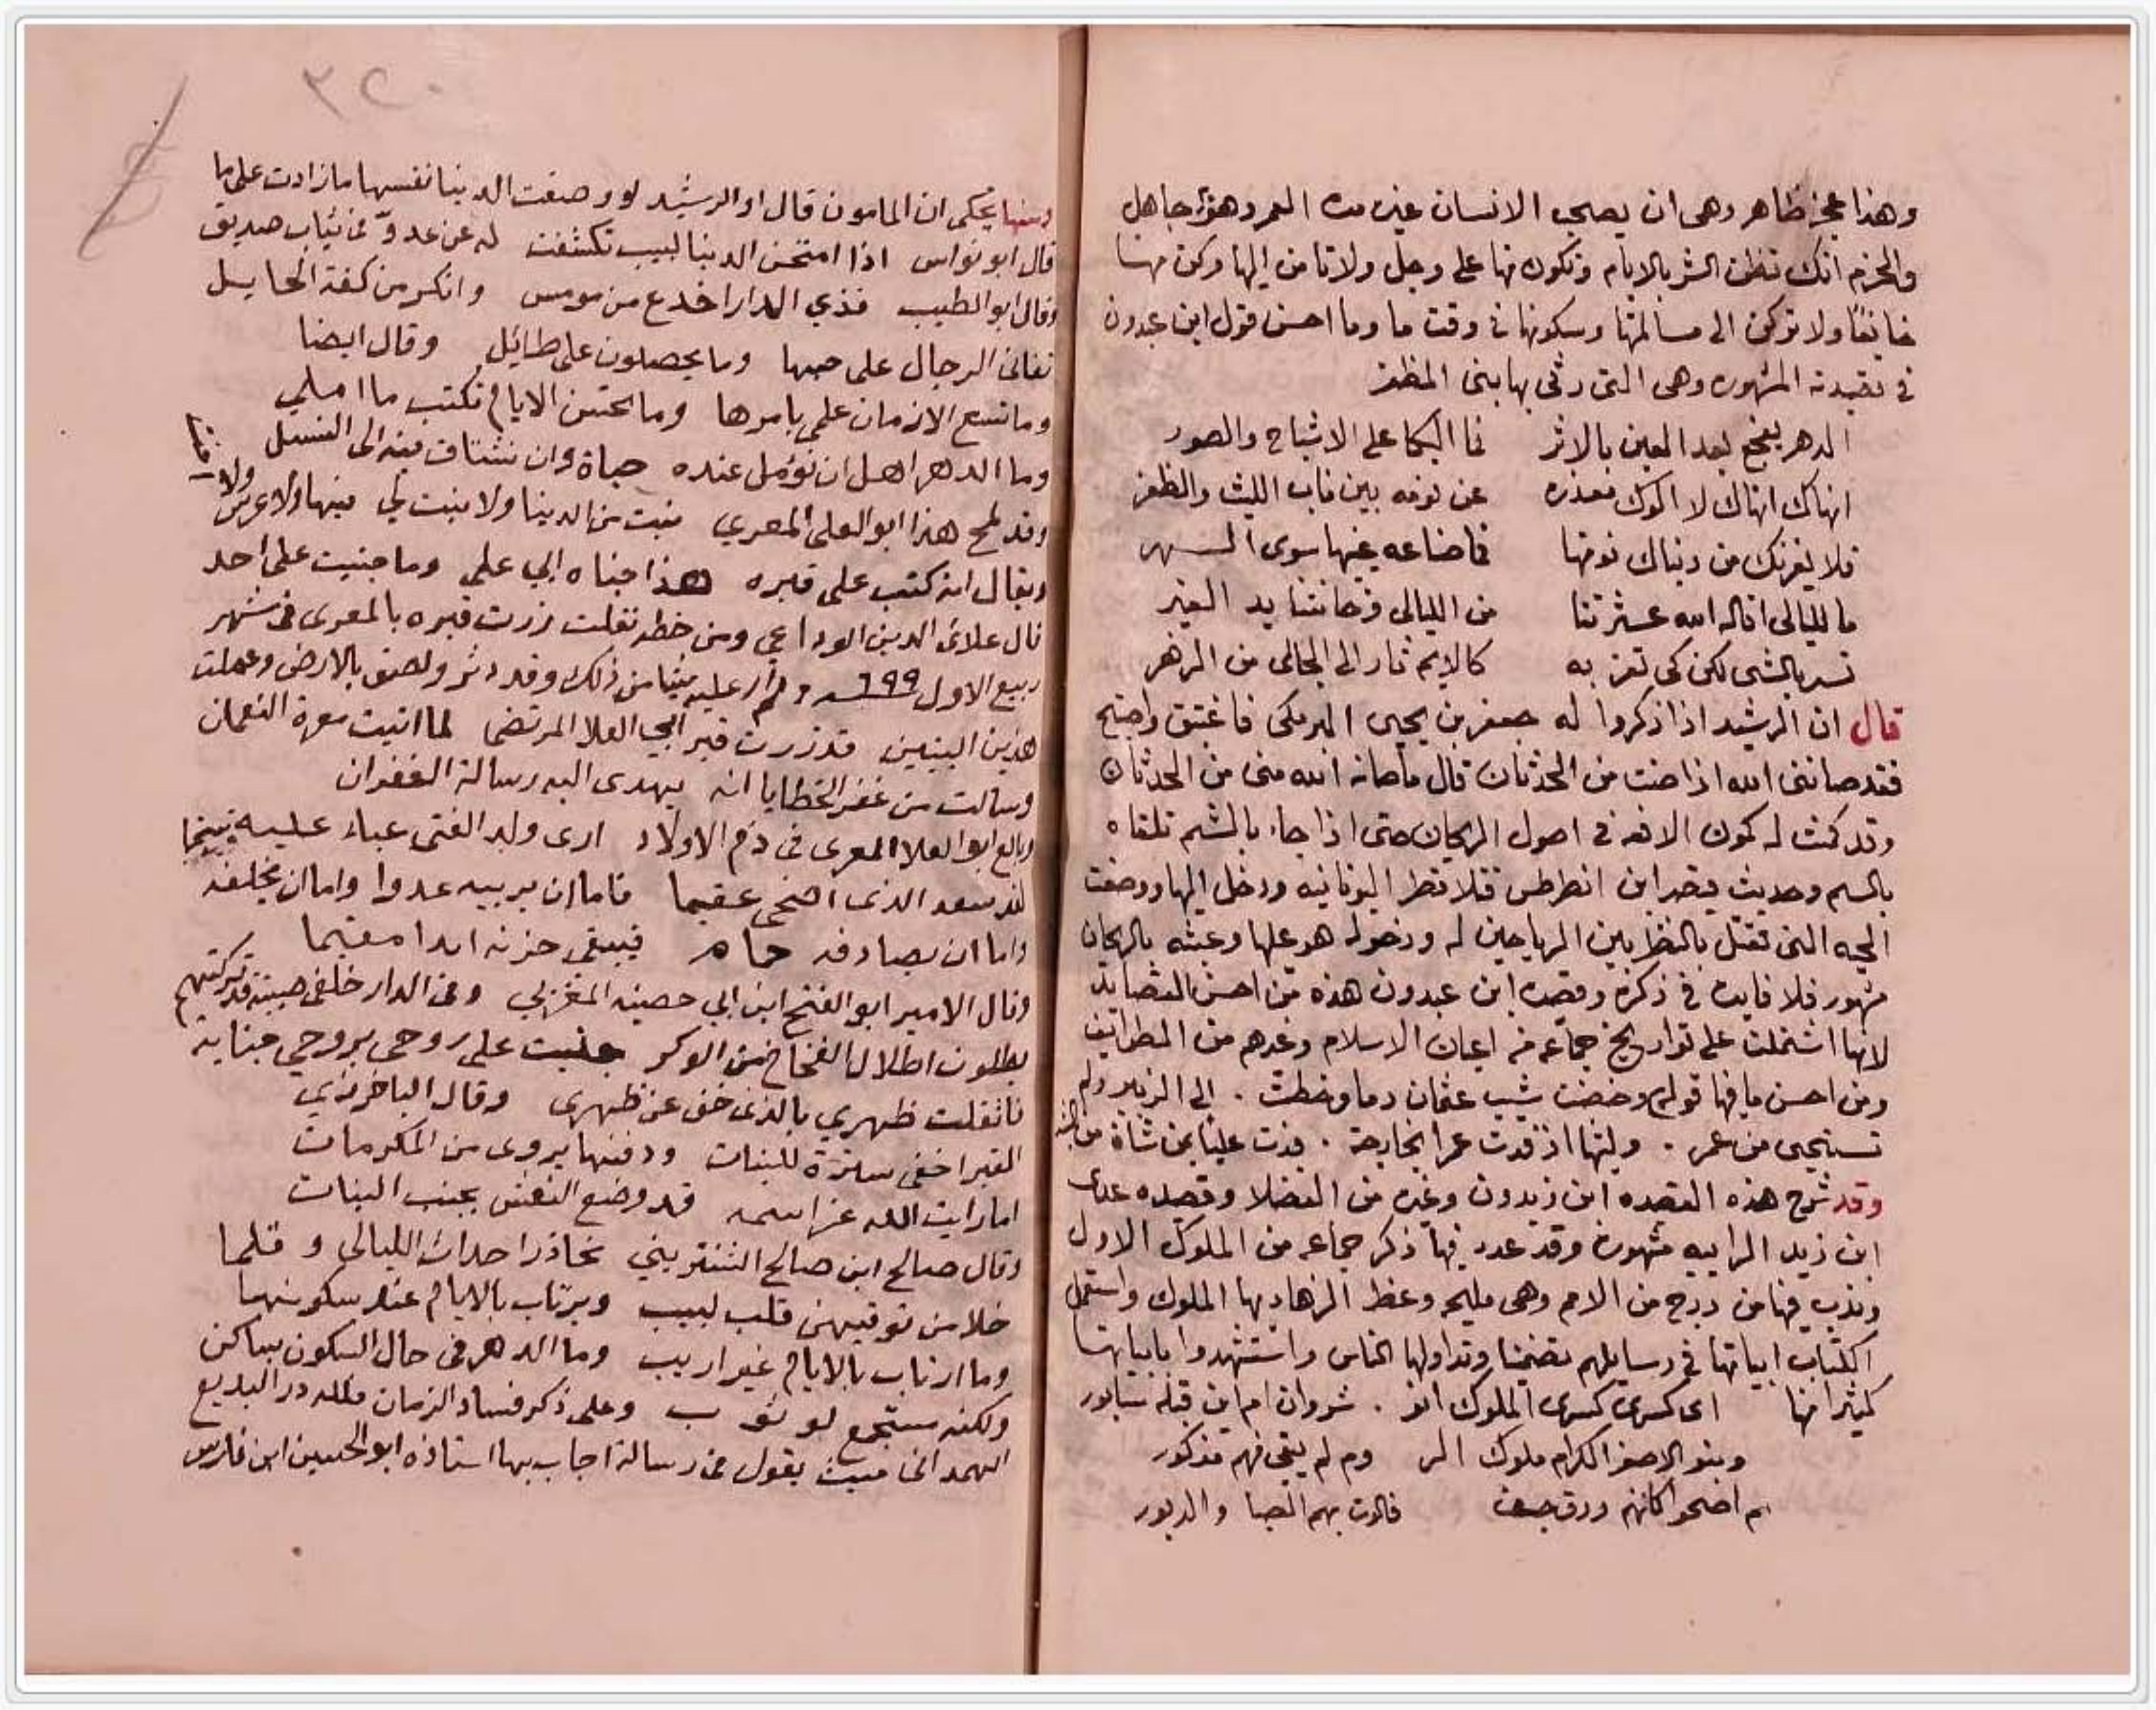 وهذا عجز ظاهر وهى ان يصحب الانسان غيره مدة العمر وهو جاهل
والحزم انك تظن الشر بالايام وتكون منها على وجل ولا تامن اليها وكن منها
خايفا ولا تركن الى مسالمتها وسكونها فى وقت ما وما احسن قول ابن عبدون
فى قصيدته المشهوره وهى التى رثى بها بنى المظفر
الدهر يفجع بعد العين بالاثر فما البكا على الاشباح والصور
انهاك انهاك لا الوك معذره عن نومه بين ناب الليث والظفر
فلا يغرنك من دنياك نومتها فما صناعه عينها سوى السهر
ما لليالى اقال الله عثرتنا من الليالى وخانتنا يد الغير
تسر بالشى لكن كى تغر به كالايم ثار الى الجانى من الزهر
قال ان الرشيد اذا ذكروا له جعفر بن يحيى البرمكى فاغتبق واصبح
فقد صاننى الله اذا صنت من الحدثان قال ما صانه الله منى من الحدثان
وقد كمنت له كمون الافعه فى اصول الريحان حتى اذا جاء بالشم تلقاه
بالسم وحديث قيصر ابن انطرطس قتلا قتطرا اليونانيه ودخل اليها ووضعت
الحيه التى تقتل بالنظر بين الرياحين له ودخوله هو عليها وعبثه بالريحان
مشهور فلا فايده فى ذكره وقصيده ابن عبدون هذه من احسن القصايد
لانها اشتملت على تواريخ جماعه من اعيان الاسلام وغيرهم من الطوايف
ومن احسن ما فيها قوله وخضبت شيب عثمان دما وخطت . الى الزبير ولم
تستحيى من عمر . وليتها اذ فدت عمرا بخارجة . فدت عليا بمن شاة من البشر
وقد شرح هذه القصده ابن زيدون وغيره من الفضلا وقصيده عدى
ابن زيد الرابيه مشهوره وقد عدد فيها ذكر جماعه من الملوك الاول
وندب فيها من درج من الامم وهى مليحه وعظ الزهاد بها الملوك واستعمل
الكتاب ابياتها فى رسايلهم تضمينا وتداولها الناس واستشهدوا بابياتها
كثيرا منها اى كسرى كسرى الملوك انو . شروان ام اين قبله سابور
وبنو الاصفر الكرام ملوك الر وم لم يبقى منهم مذكور
ثم اضحوا كانهم ورق جف فالوت بهم الصبا والدبور
٣٢٠
ومنها يحكى ان المامون قال او الرشيد لو وصفت الدينا نفسها ما زادت على ما
قال ابو نواس اذا امتحن الدينا لبيب تكشفت له عن عدوّ فى ثياب صديق
وقال ابو الطيب فذي الدار اخدع من مومس وانكر من كفة الحايل
تفانى الرجال على حبها وما يحصلون على طائل وقال ايضا
وما تسع الازمان علمى بامرها وما تحسن الايام تكتب ما املي
وما الدهر اهل ان نؤمل عنده حياة وان نشتاق فيه الى النسل
وقد لمح هذا ابو العلى المعري بنيت من الدينا ولا بنت لي فيها ولا عرس ولا
ويقال انه كتب على قبره هذا جناه ابي علي وما جنيت على احد
قال علائ الدين الوداعي ومن خطه نقلت زرت قبره بالمعرى فى شهر
ربيع الاول ٦٩٩ ولم ار عليه شيا من ذلك وقد دثر ولصق بالارض وعملت
هذين البيتين قد زرت قبر ابي العلا المرتضى لما اتيت معرة النعمان
وسالت من غفر الخطايا انه يهدى اليه رسالة الغفران
وبالغ ابو العلا المعرى فى ذم الاولاد ارى ولد الفتى عباء عليه
لقد سعد الذى اضحى عقيما فاما ان يربيه عدوا واما ان يخلفه
واما ان يصادفه حماه فيبقى حزنه ابدا مقيما
وقال الامير ابو الفتح ابن ابي حصينه المغربي وفى الدار خلفى صبية قد تركتهم
يطلون اطلال الفخاخ من الوكر جنيت على روحى بروحي جناية
فاثقلت ظهري بالذى خف عن ظهرى وقال الباخرزي
القبر اخفى سترة للبنات ودفنها يروى من المكرمات
اما رايت الله عز اسمه قد وضع النعش بجنب البنات
وقال صالح ابن صالح الشنتريني تحاذر احداث الليالى وقلما
خلا من توقيهن قلب لبيب ويرتاب بالايام عند سكونها
وما ارتاب بالايام غير اريب وما الدهر فى حال السكون بساكن
ولكنه مستجمع لوثوب وعلى ذكر فساد الزمان فلله در البديع
الهمدانى حيث يقول فى رسالة اجاب بها استاذه ابو الحسين ابن فارس